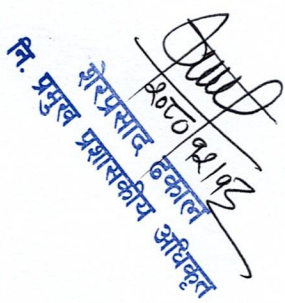 २०८०/१२/१३
शेरप्रसाद ढकाल
नि. प्रमुख प्रशासकीय अधिकृत